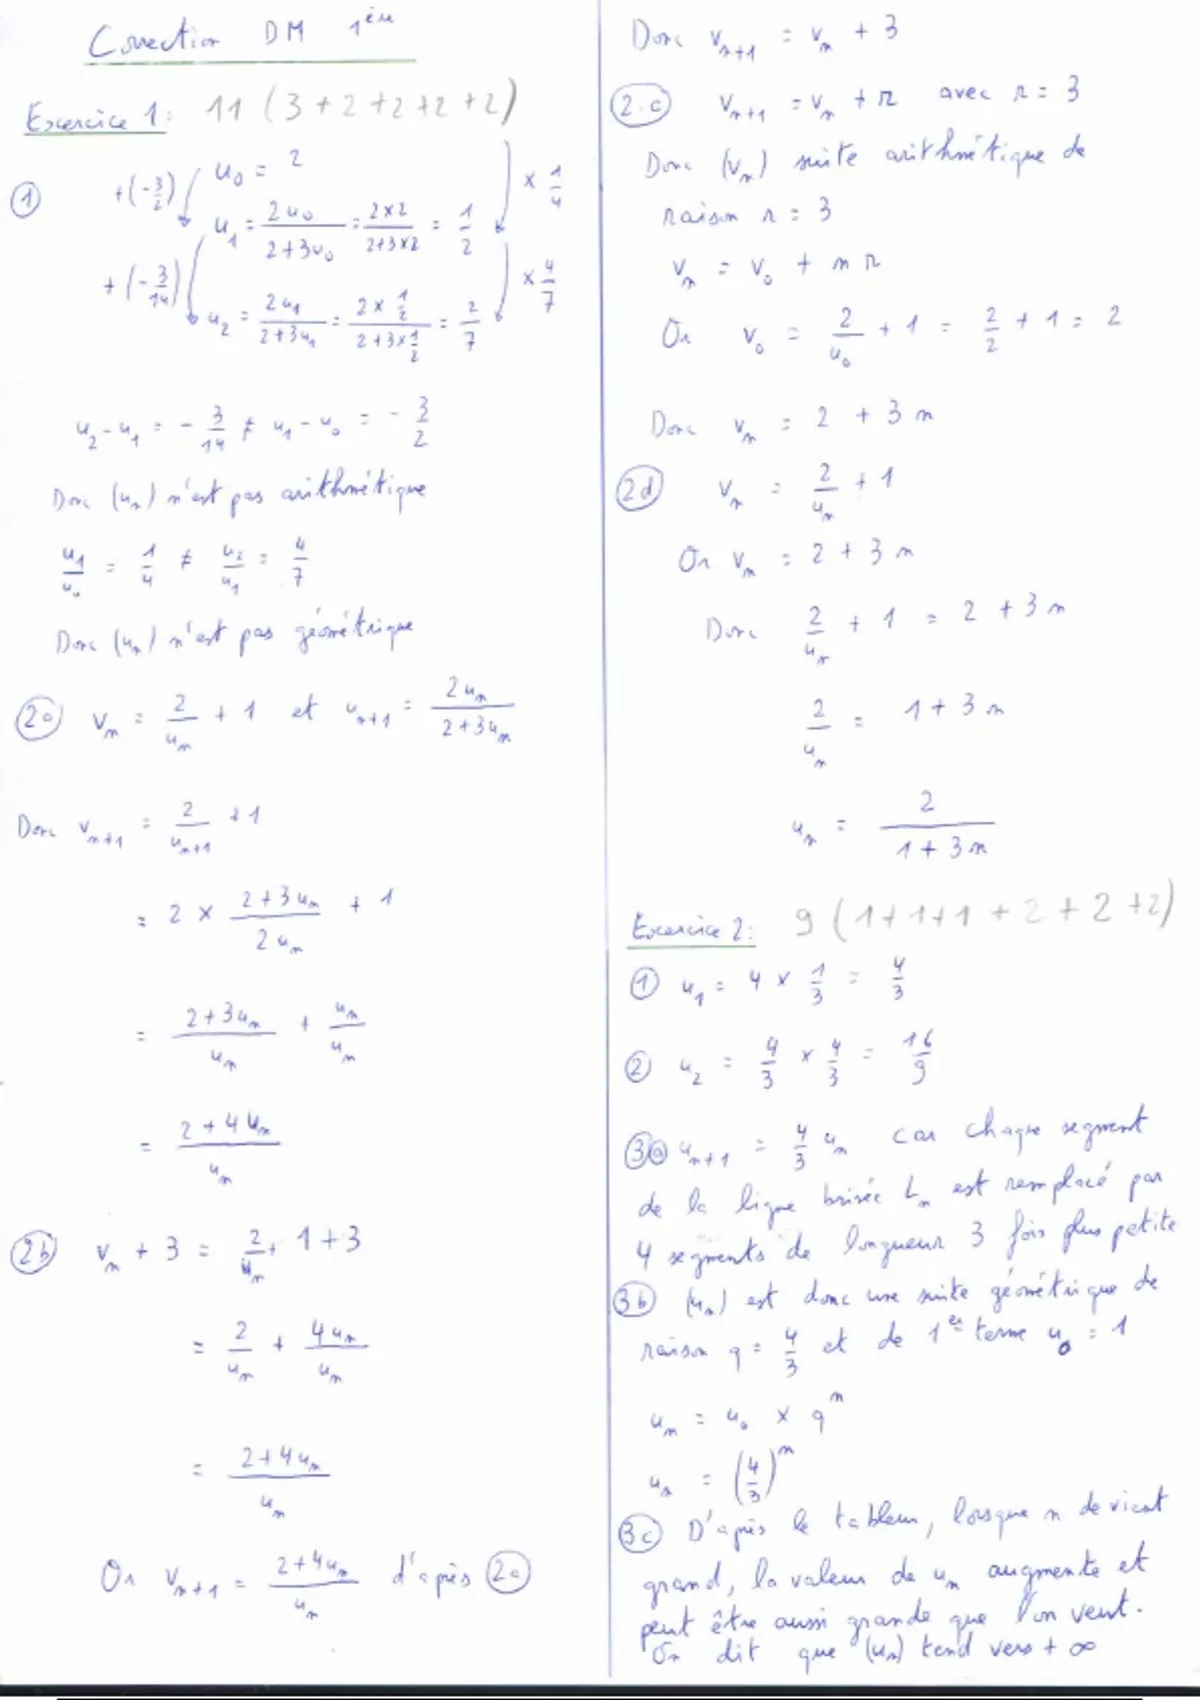 Correction DM 1ère
Exercice 1: 11 (3+2+2+2+2)
① +(-3/2) u₀ = 2 × 1/4
u₁ = 2u₀/(2+3u₀) = (2×2)/(2+3×2) = 1/2
+(-3/14) × 4/7
u₂ = 2u₁/(2+3u₁) = (2×1/2)/(2+3×1/2) = 2/7
u₂-u₁ = -3/14 ≠ u₁-u₀ = -3/2
Donc (uₙ) n'est pas arithmétique
u₁/u₀ = 1/4 ≠ u₂/u₁ = 4/7
Donc (uₙ) n'est pas géométrique
2a vₙ = 2/uₙ + 1 et uₙ₊₁ = 2uₙ/(2+3uₙ)
Donc vₙ₊₁ = 2/uₙ₊₁ + 1
= 2 × (2+3uₙ)/(2uₙ) + 1
= (2+3uₙ)/uₙ + uₙ/uₙ
= (2+4uₙ)/uₙ
2b vₙ + 3 = 2/uₙ + 1+3
= 2/uₙ + 4uₙ/uₙ
= (2+4uₙ)/uₙ
Or vₙ₊₁ = (2+4uₙ)/uₙ d'après 2a
Donc vₙ₊₁ = vₙ + 3
2.c vₙ₊₁ = vₙ + r avec r = 3
Donc (vₙ) suite arithmétique de
raison r = 3
vₙ = v₀ + n r
Or v₀ = 2/u₀ + 1 = 2/2 + 1 = 2
Donc vₙ = 2 + 3n
2d vₙ = 2/uₙ + 1
Or vₙ = 2 + 3n
Donc 2/uₙ + 1 = 2 + 3n
2/uₙ = 1 + 3n
uₙ = 2/(1+3n)
Exercice 2: 9 (1+1+1+2+2+2)
① u₁ = 4 × 1/3 = 4/3
② u₂ = 4/3 × 4/3 = 16/9
3a uₙ₊₁ = 4/3 uₙ car chaque segment
de la ligne brisée Lₙ est remplacé par
4 segments de longueur 3 fois plus petite
3b (uₙ) est donc une suite géométrique de
raison q = 4/3 et de 1er terme u₀ = 1
uₙ = u₀ × qⁿ
uₙ = (4/3)ⁿ
3c D'après le tableau, lorsque n devient
grand, la valeur de uₙ augmente et
peut être aussi grande que l'on veut.
On dit que (uₙ) tend vers +∞